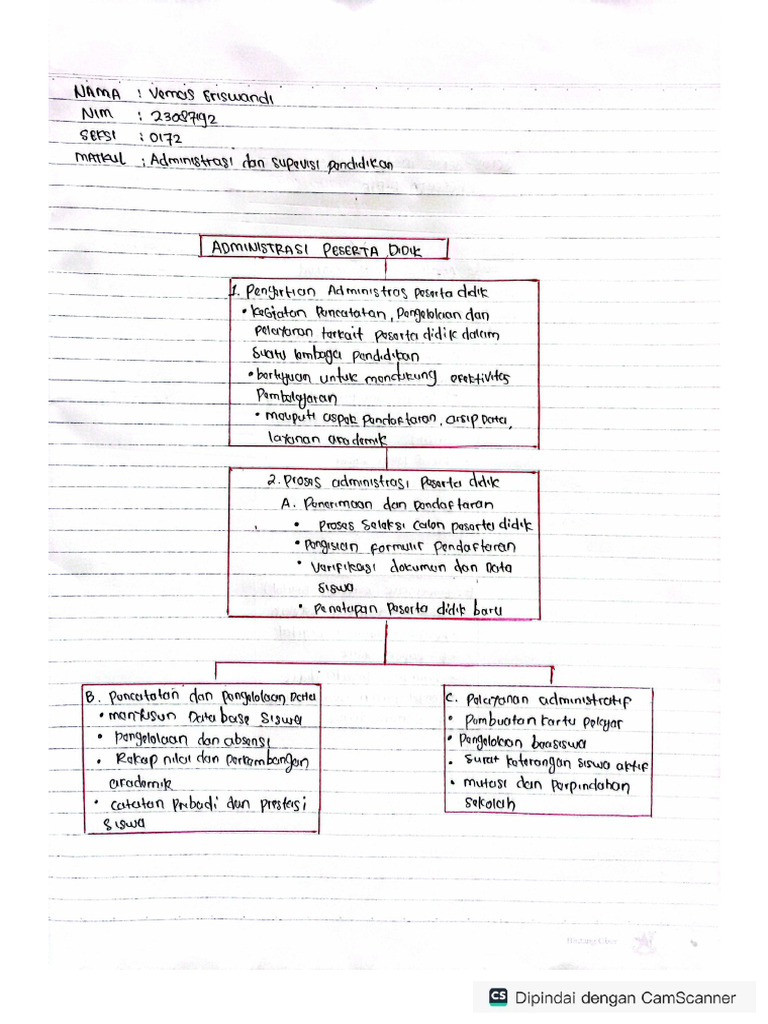 NAMA : Vemas Eriswandi
NIM : 23087192
SEKSI : 0172
MATKUL : Administrasi dan supevisi pendidikan
ADMINISTRASI PESERTA DIDIK
1. Pengertian Administras peserta didik
• Kegiatan Pencatatan, Pengelolaan dan
Pelayanan terkait peserta didik dalam
suatu lembaga pendidikan
• bertujuan untuk mendukung efektivitas
Pembelajaran
• meliputi aspek pendaftaran, arsip data,
layanan akademik
2. Proses administrasi Peserta didik
A. Penerimaan dan pendaftaran
• Proses Seleksi calon peserta didik
• Pengisian formulir pendaftaran
• Verifikasi dokumen dan Data
siswa
• Penetapan Peserta didik baru
B. Pencatatan dan Pengelolaan Data
• menyusun Data base Siswa
• Pengelolaan dan absensi
• Rekap nilai dan perkembangan
akademik
• catatan Pribadi dan Prestasi
siswa
C. Pelayanan administratif
• Pembuatan kartu Pelajar
• Pengelolaan beasiswa
• Surat keterangan siswa aktif
• mutasi dan Perpindahan
sekolah
CS Dipindai dengan CamScanner